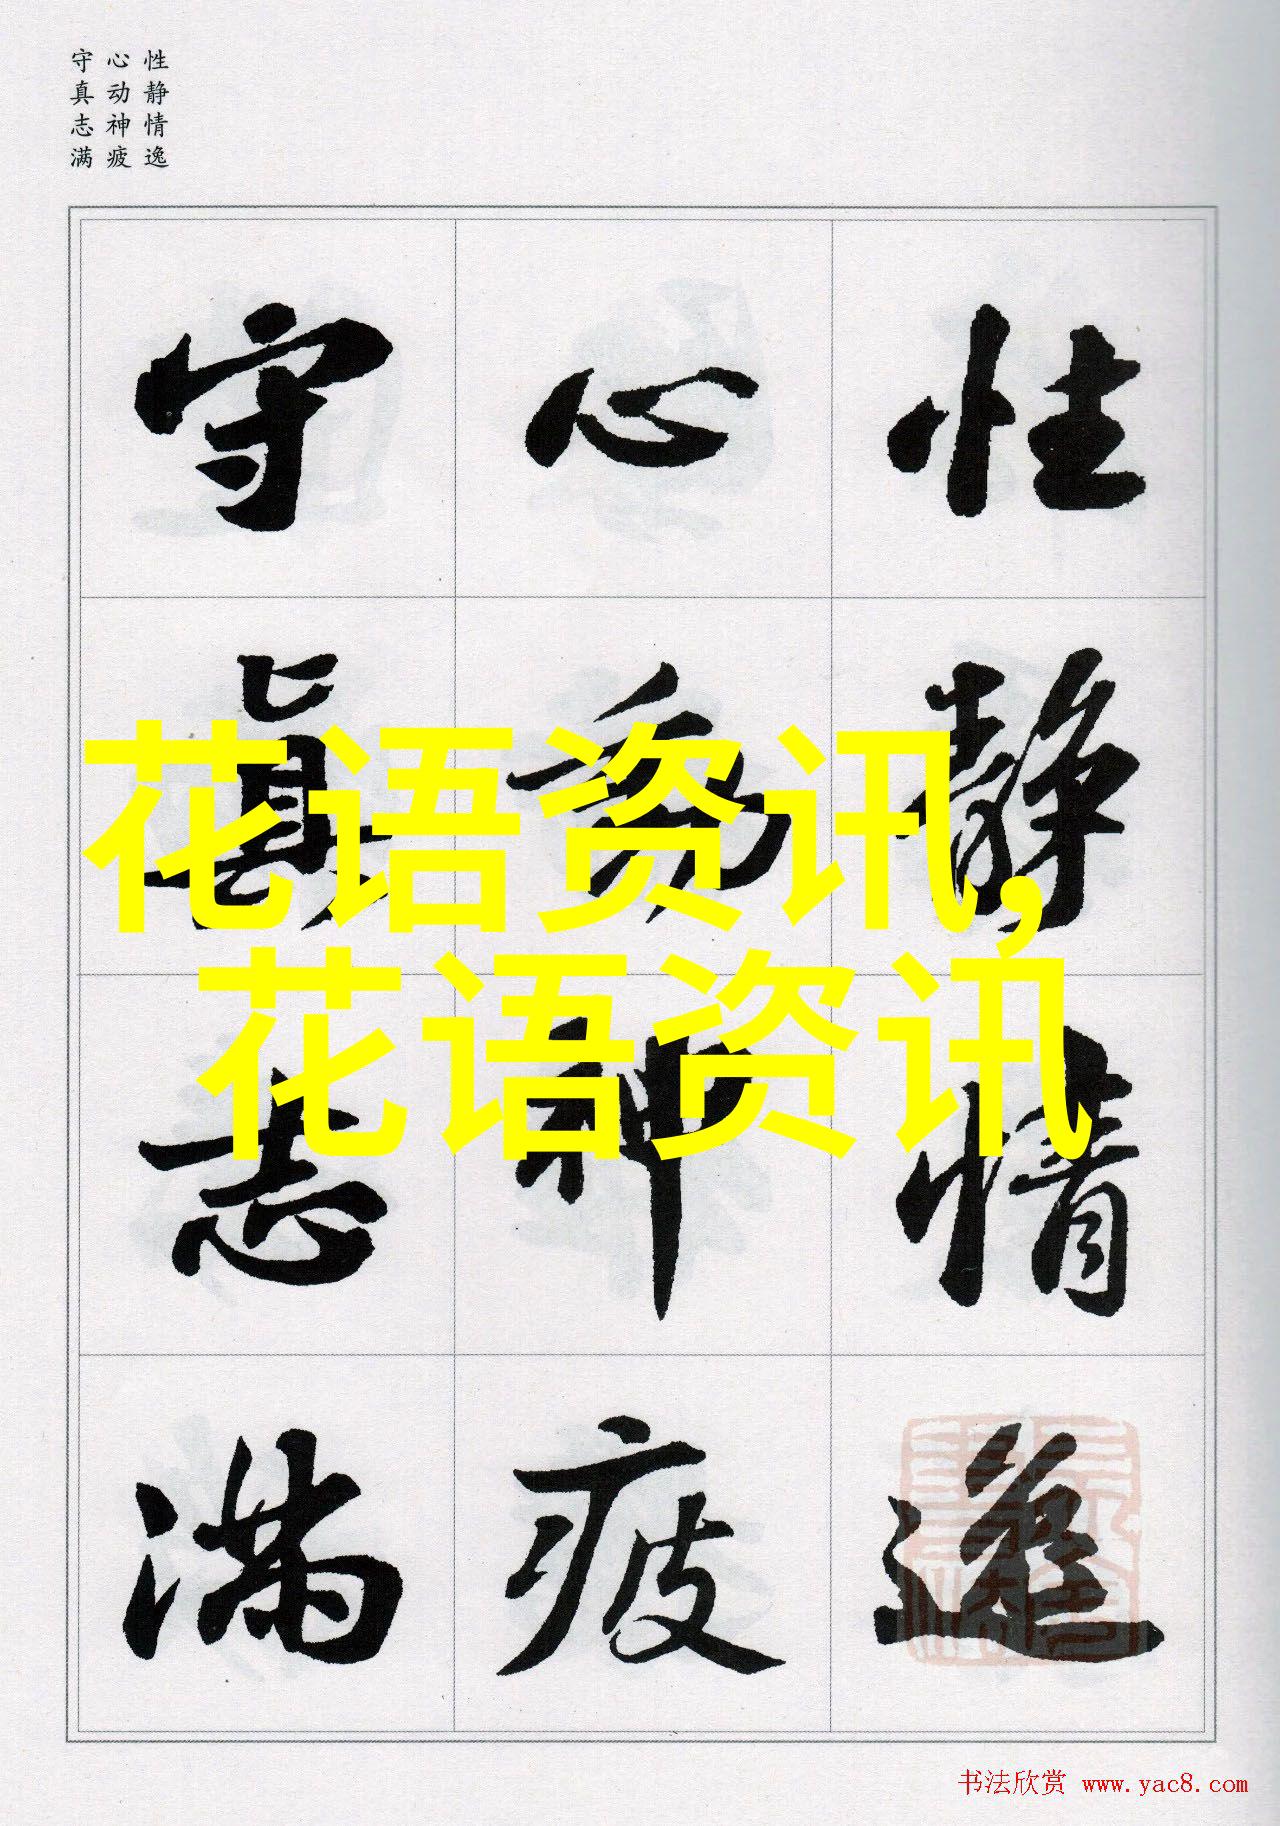 性静情逸
心动神疲
守真志满
性静情逸
心动神疲
守真志满
花语资讯,
花语资讯
书法欣赏 www.yac8.com